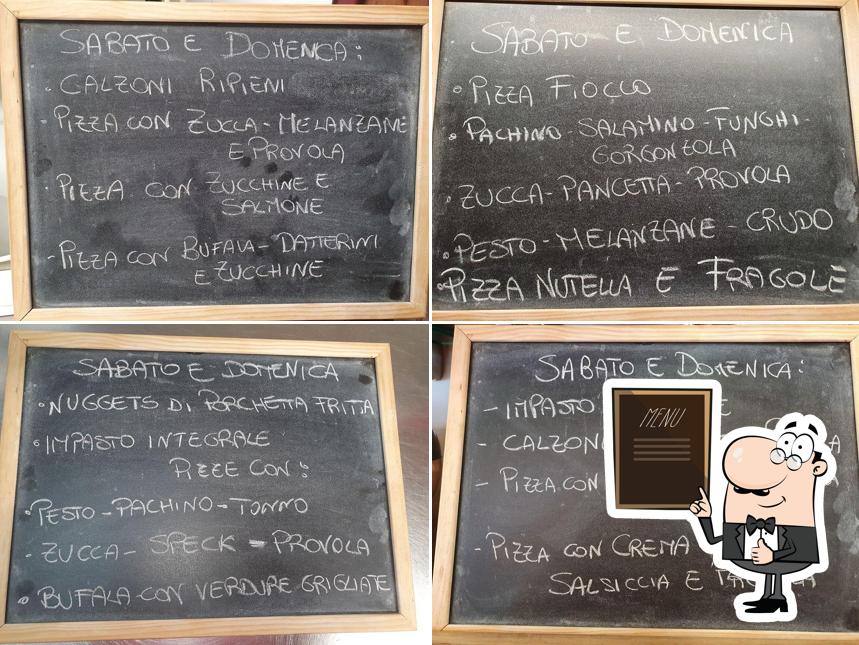 SABATO E DOMENICA:
. CALZONI RIPIENI
- PIZZA CON ZUCCA - MELANZANE
E PROVOLA
· PIZZA CON ZUCCHINE E
SALMONE
- PIZZA CON BUFALA - DATTERINI
E ZUCCHINE
SABATO E DOMENICA
• PIZZA FIOCCO
• PACHINO - SALAMINO - FUNGHI -
GORGONZOLA
• ZUCCA - PANCETTA - PROVOLA
• PESTO - MELANZANE - CRUDO
• PIZZA NUTELLA E FRAGOLE
SABATO E DOMENICA
• NUGGETS DI PORCHETTA FRITTA
• IMPASTO INTEGRALE
PIZZE CON:
• PESTO - PACHINO - TONNO
- ZUCCA - SPECK - PROVOLA
• BUFALA CON VERDURE GRIGLIATE
SABATO E DOMENICA:
- IMPASTO
- CALZON
- PIZZA CON
- PIZZA CON CREMA
SALSICCIA E
MENU